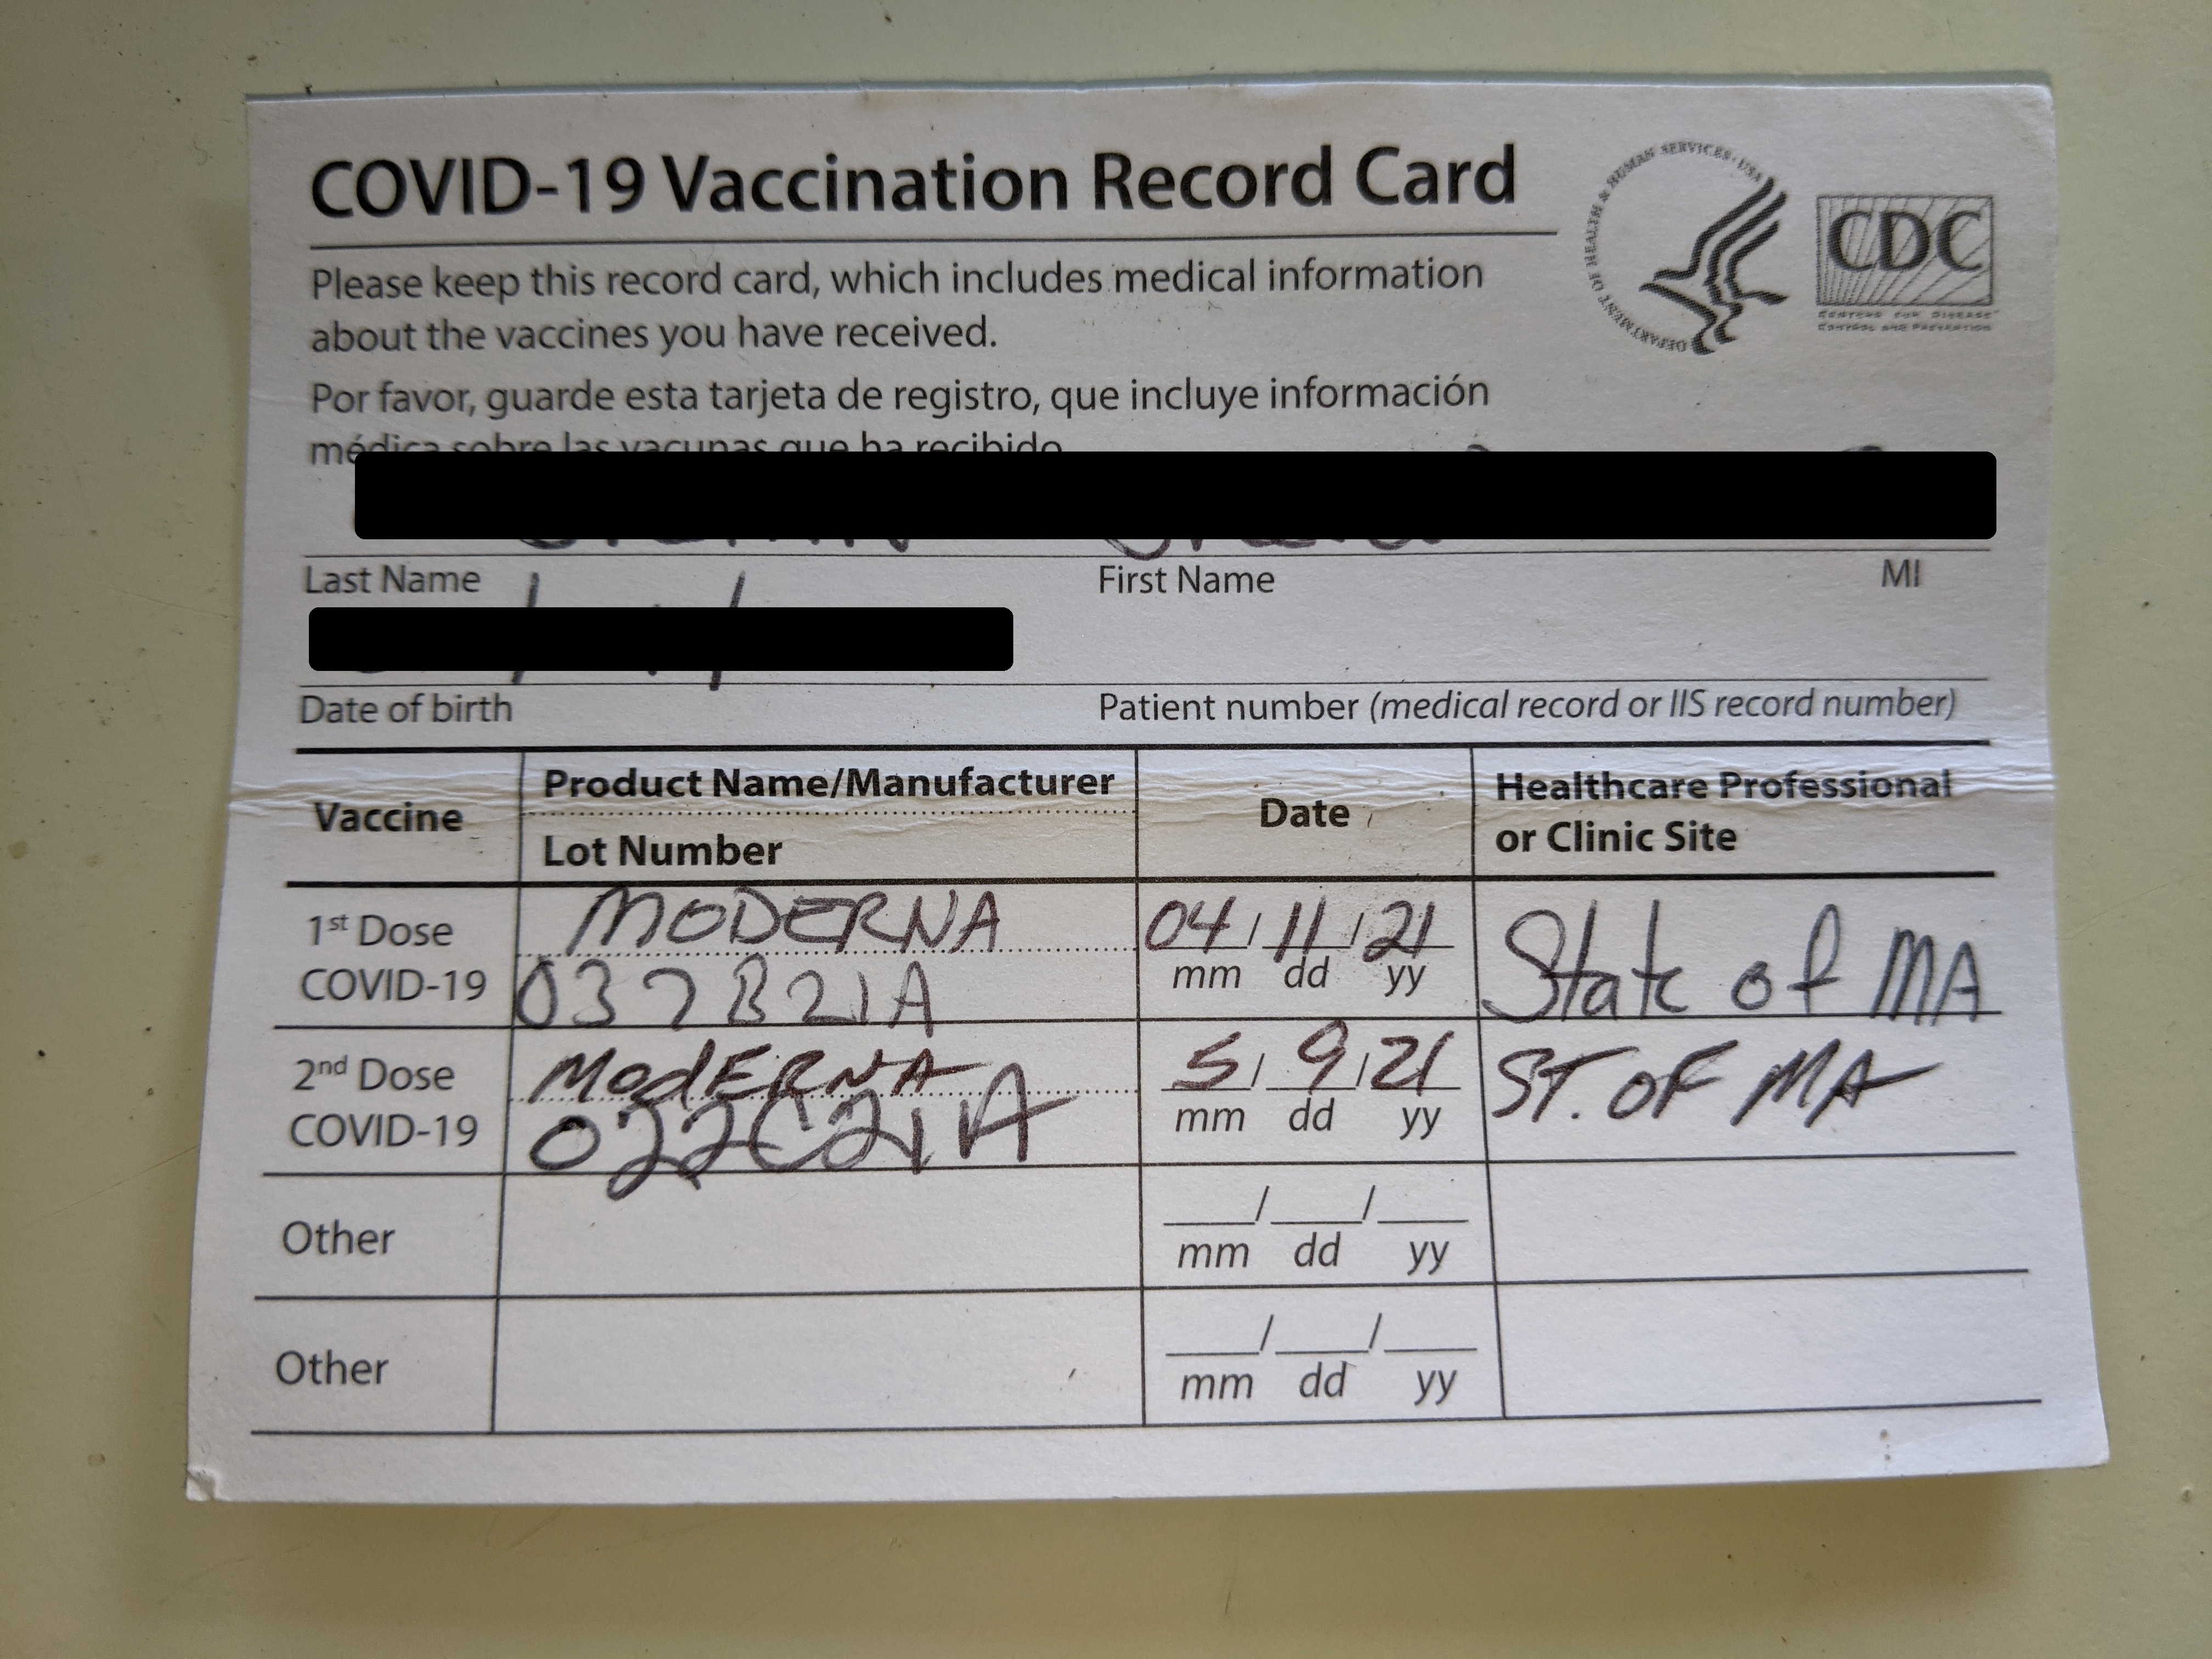 COVID-19 Vaccination Record Card
DEPARTMENT OF HEALTH & HUMAN SERVICES · USA
CDC
CENTERS FOR DISEASE
CONTROL AND PREVENTION
Please keep this record card, which includes medical information
about the vaccines you have received.
Por favor, guarde esta tarjeta de registro, que incluye información
médica sobre las vacunas que ha recibido
Last Name First Name MI
Date of birth Patient number (medical record or IIS record number)
Vaccine Product Name/Manufacturer Date Healthcare Professional
Lot Number or Clinic Site
1st Dose MODERNA 04/11/21 State of MA
COVID-19 037B21A mm dd yy
2nd Dose ModERNA 5/9/21 ST. OF MA
COVID-19 022C21A mm dd yy
Other / /
mm dd yy
Other / /
mm dd yy